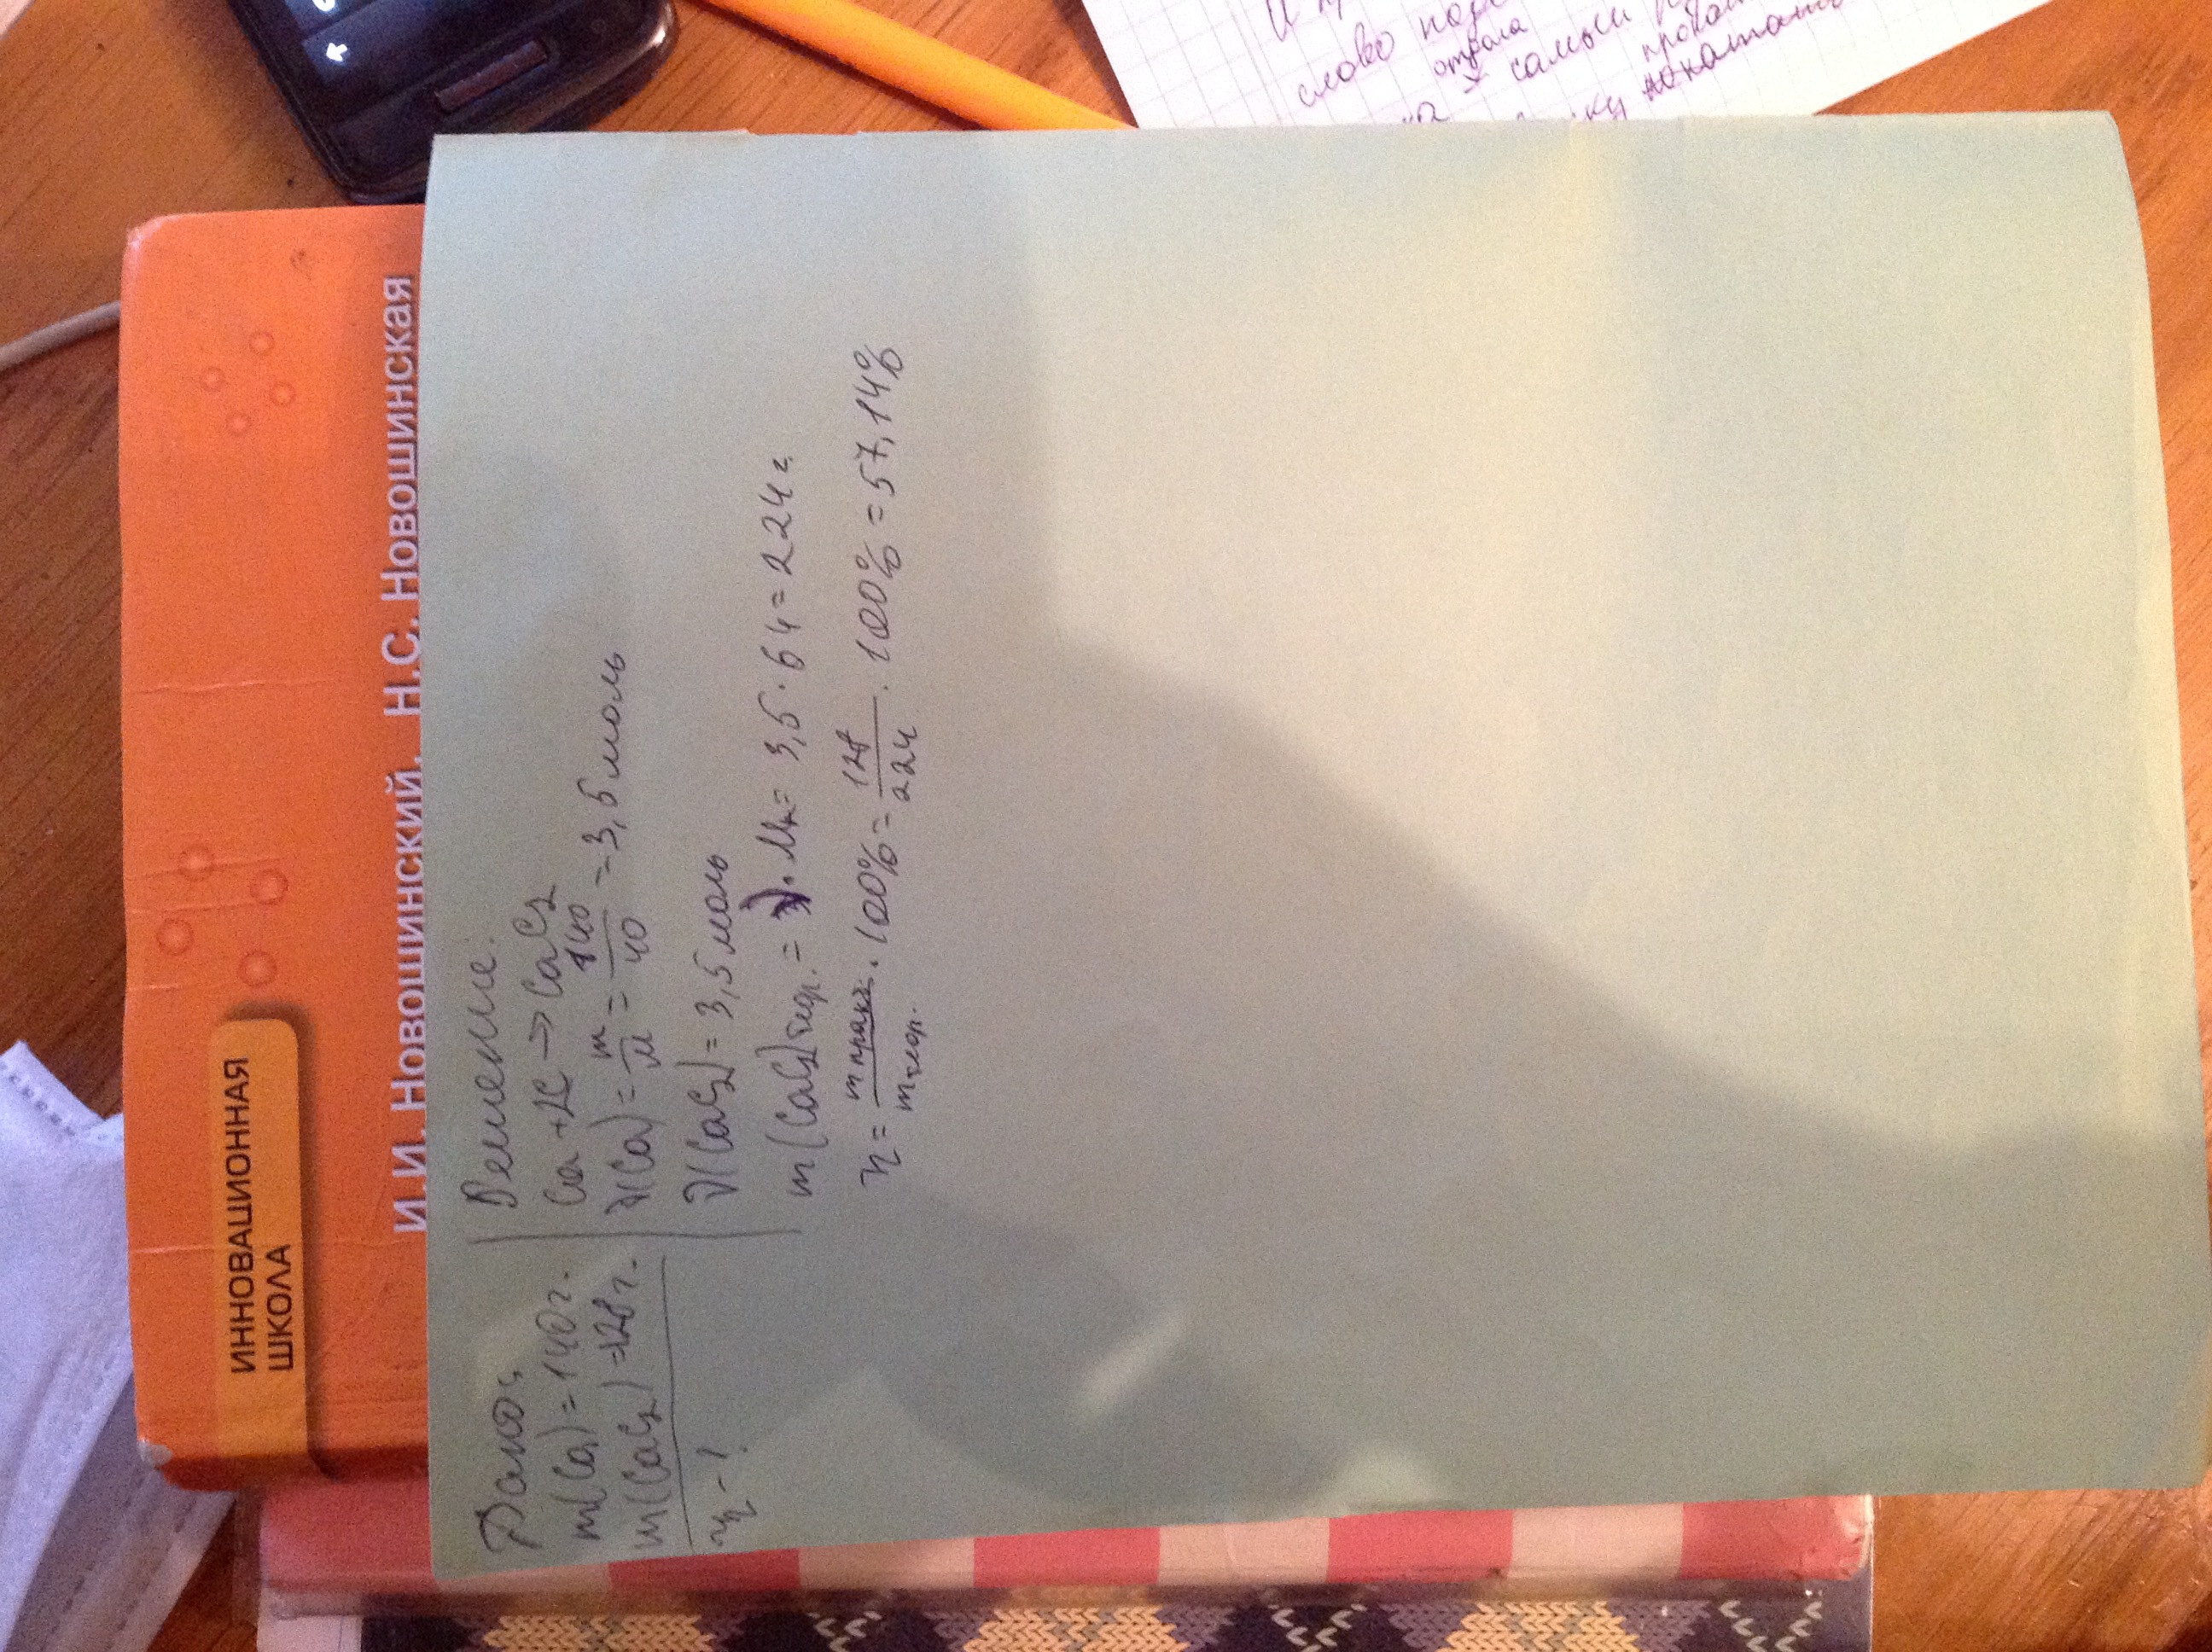 ИННОВАЦИОННАЯ
ШКОЛА
И.И. Новошинский, Н.С. Новошинская
Дано:
m(Ca) = 140 г.
m(CaC₂) = 128 г.
η - ?
Решение:
Ca + 2C → CaC₂
ν(Ca) = m/M = 140/40 = 3,5 моль
ν(CaC₂) = 3,5 моль
m(CaC₂) теор. = ν · Mr = 3,5 · 64 = 224 г.
η = m практ./m теор. · 100% = 128/224 · 100% = 57,14%
слово
отдала
самый